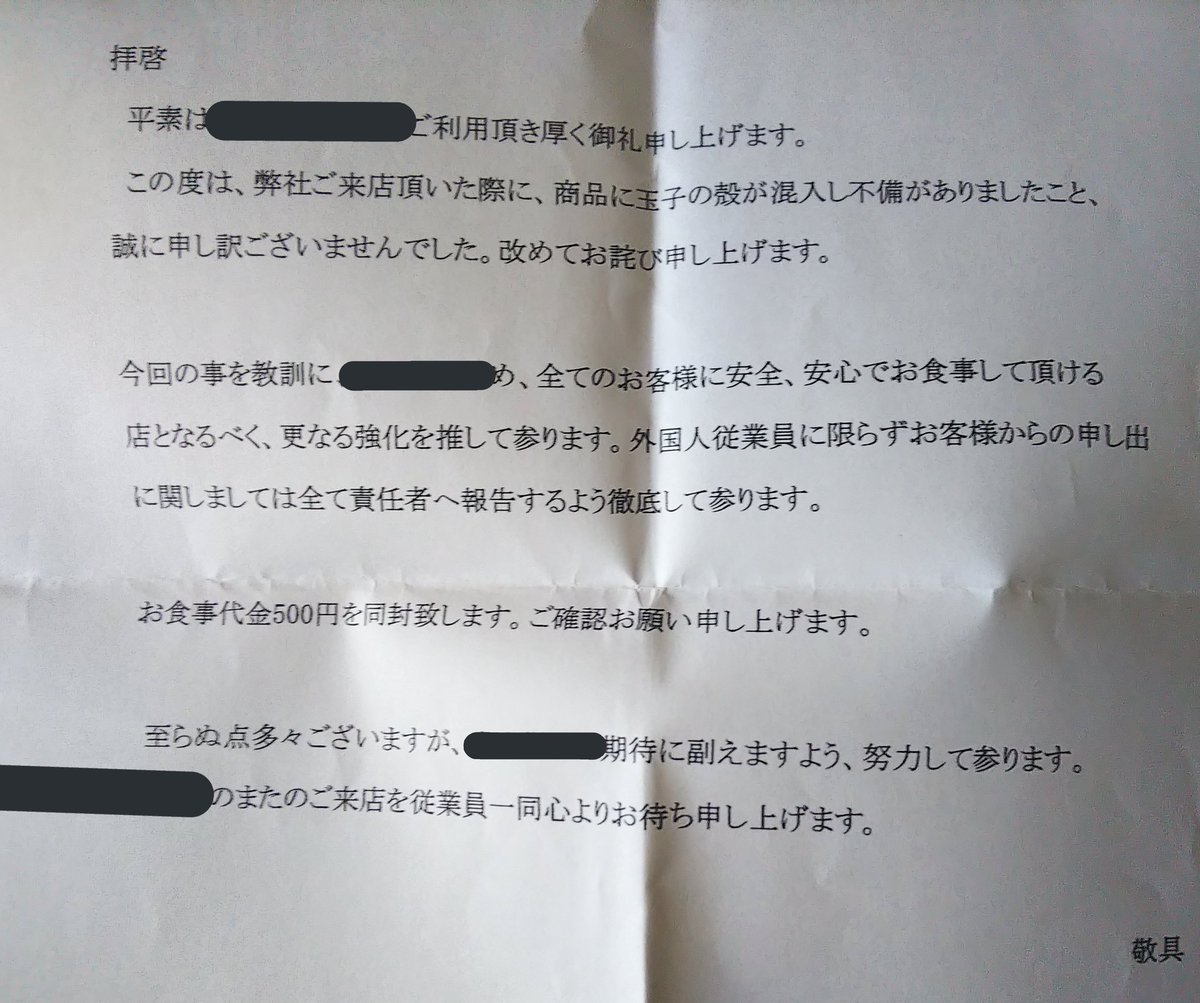 拝啓
平素は ご利用頂き厚く御礼申し上げます。
この度は、弊社ご来店頂いた際に、商品に玉子の殻が混入し不備がありましたこと、
誠に申し訳ございませんでした。改めてお詫び申し上げます。
今回の事を教訓に、 め、全てのお客様に安全、安心でお食事して頂ける
店となるべく、更なる強化を推して参ります。外国人従業員に限らずお客様からの申し出
に関しましては全て責任者へ報告するよう徹底して参ります。
お食事代金500円を同封致します。ご確認お願い申し上げます。
至らぬ点多々ございますが、 期待に副えますよう、努力して参ります。
のまたのご来店を従業員一同心よりお待ち申し上げます。
敬具